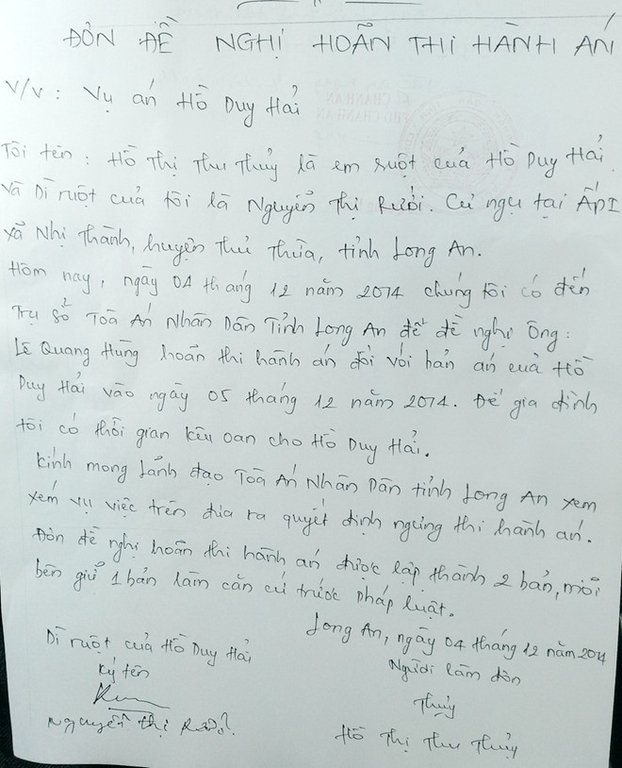 ĐƠN ĐỀ NGHỊ HOÃN THI HÀNH ÁN
V/v : Vụ án Hồ Duy Hải
Tôi tên : Hồ Thị Thu Thủy là em ruột của Hồ Duy Hải.
và Dì ruột của tôi là Nguyễn Thị Rưởi. Cư ngụ tại Ấp I
xã Nhị Thành, huyện Thủ Thừa, tỉnh Long An.
Hôm nay, ngày 04 tháng 12 năm 2014 chúng tôi có đến
Trụ Sở Toà Án Nhân Dân Tỉnh Long An để đề nghị Ông :
Lê Quang Hùng hoãn thi hành án đối với bản án của Hồ
Duy Hải vào ngày 05 tháng 12 năm 2014. Để gia đình
tôi có thời gian kêu oan cho Hồ Duy Hải.
Kính mong Lãnh đạo Toà Án Nhân Dân tỉnh Long An xem
xém vụ việc trên đưa ra quyết định ngừng thi hành án.
Đơn đề nghị hoãn thi hành án được lập thành 2 bản, mỗi
bên giử 1 bản làm căn cứ trước pháp luật.
Long An, ngày 04 tháng 12 năm 2014
Dì ruột của Hồ Duy Hải
Người làm đơn
Ký tên
Thủy
Nguyễn Thị Rưởi.
Hồ Thị Thu Thủy